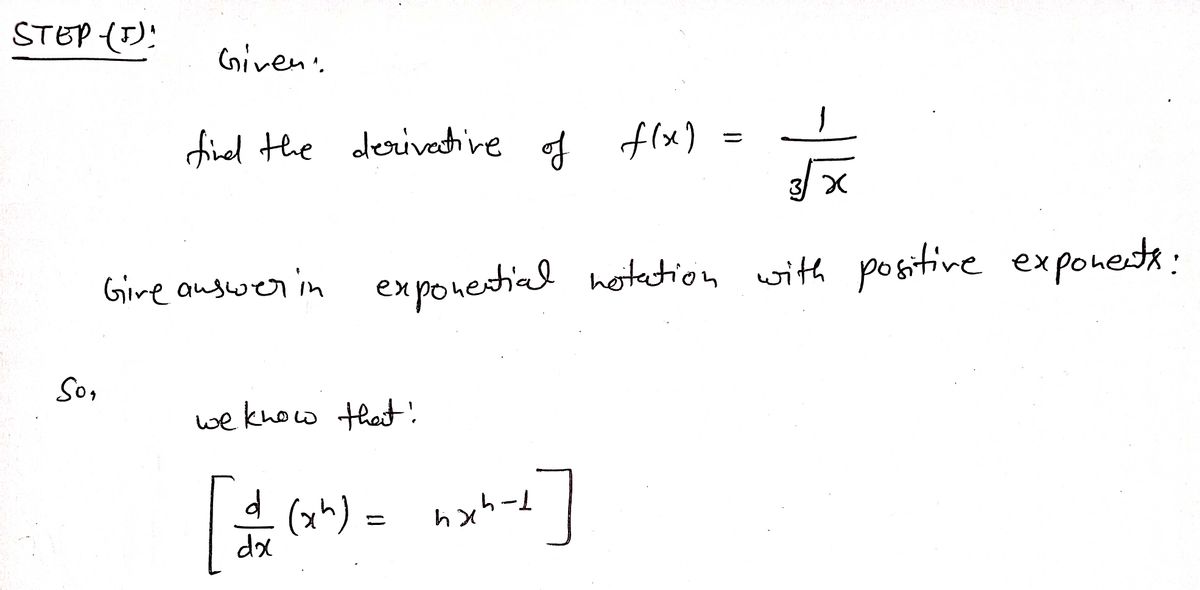 STEP-(I):
Given:
find the derivative of f(x) = 1/∛x
Give answer in exponential notation with positive exponents:
So,
we know that:
[d/dx (xⁿ) = nxⁿ⁻¹]